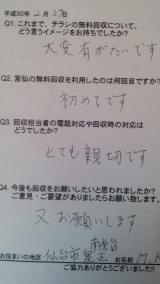 平成30年2月27日
Q1.これまで、チラシの無料回収について、
どう言うイメージをお持ちでしたか?
大変有がたいです
Q2.宮仙の無料回収を利用したのは何回目ですか?
初めてです
Q3.回収担当者の電話対応や回収時の対応は
どうでしたか?
とても親切です
Q4.今後も回収をお願いしたいと思われましたか?
ご意見・ご要望がありましたらお願い致します。
又お願いします
お住まいの地区 仙台市泉区 お名前 M.K
ご協力ありがとうございました!!